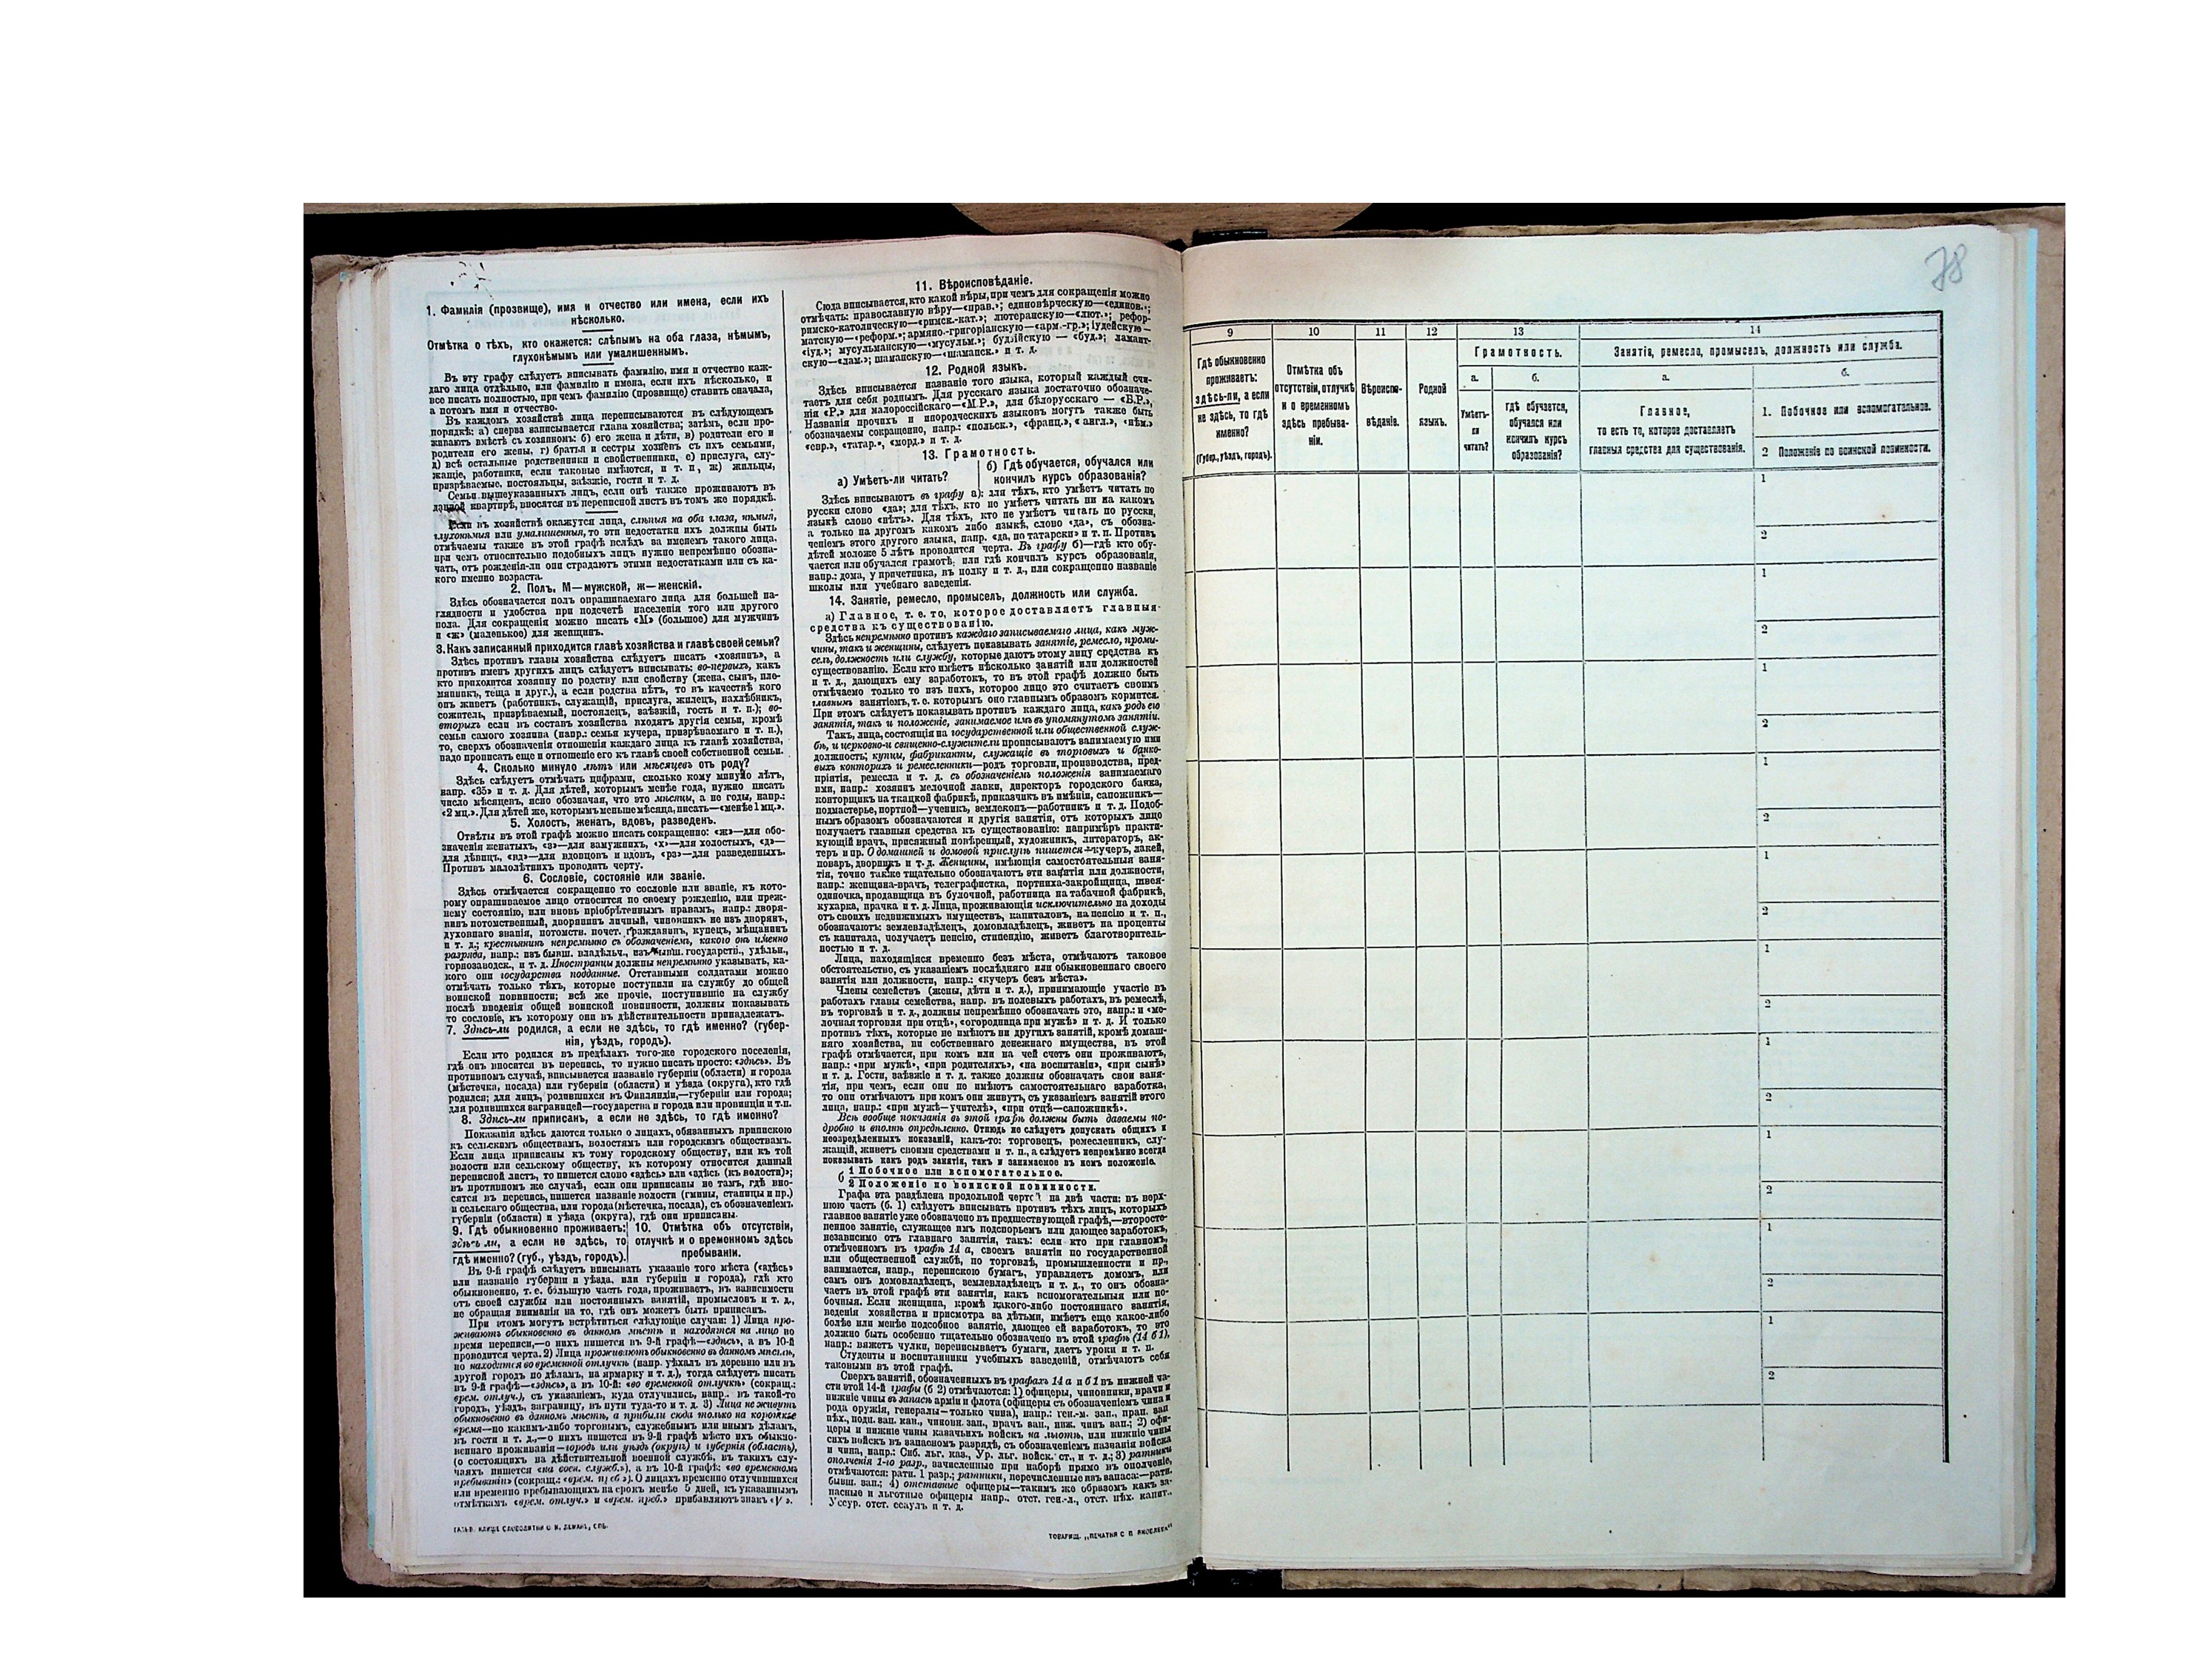 1. Фамилія (прозвище), имя и отчество или имена, если ихъ
нѣсколько.
Отмѣтка о тѣхъ, кто окажется: слѣпымъ на оба глаза, нѣмымъ,
глухонѣмымъ или умалишеннымъ.
Въ эту графу слѣдуетъ вписывать фамилію, имя и отчество каж-
даго лица отдѣльно, или фамилію и имена, если ихъ нѣсколько, и
все писать полностью, при чемъ фамилію (прозвище) ставить сначала,
а потомъ имя и отчество.
Въ каждомъ хозяйствѣ лица переписываются въ слѣдующемъ
порядкѣ: а) сперва записывается глава хозяйства; затѣмъ, если про-
живаютъ вмѣстѣ съ хозяиномъ: б) его жена и дѣти, в) родители его и
родители его жены, г) братья и сестры хозяевъ съ ихъ семьями,
д) всѣ остальные родственники и свойственники, е) прислуга, слу-
жащіе, работники, если таковые имѣются, и т. п., ж) жильцы,
призрѣваемые, постояльцы, заѣзжіе, гости и т. д.
Семьи вышеуказанныхъ лицъ, если онѣ также проживаютъ въ
данной квартирѣ, вносятся въ переписной листъ въ томъ же порядкѣ.
Если въ хозяйствѣ окажутся лица, слѣпыя на оба глаза, нѣмыя,
глухонѣмыя или умалишенныя, то эти недостатки ихъ должны быть
отмѣчаемы также въ этой графѣ вслѣдъ за именемъ такого лица,
при чемъ относительно подобныхъ лицъ нужно непремѣнно обозна-
чать, отъ рожденія-ли они страдаютъ этими недостатками или съ ка-
кого именно возраста.
2. Полъ. М—мужской, ж—женскій.
Здѣсь обозначается полъ опрашиваемаго лица для большей на-
глядности и удобства при подсчетѣ населенія того или другого
пола. Для сокращенія можно писать «М» (большое) для мужчинъ
и «ж» (маленькое) для женщинъ.
3. Какъ записанный приходится главѣ хозяйства и главѣ своей семьи?
Здѣсь противъ главы хозяйства слѣдуетъ писать «хозяинъ», а
противъ именъ другихъ лицъ слѣдуетъ вписывать: во-первыхъ, какъ
кто приходится хозяину по родству или свойству (жена, сынъ, пле-
мянникъ, теща и друг.), а если родства нѣтъ, то въ качествѣ кого
онъ живетъ (работникъ, служащій, прислуга, жилецъ, нахлѣбникъ,
сожитель, призрѣваемый, постоялецъ, заѣзжій, гость и т. п.); во-
вторыхъ если въ составъ хозяйства входятъ другія семьи, кромѣ
семьи самого хозяина (напр.: семья кучера, призрѣваемаго и т. п.),
то, сверхъ обозначенія отношенія каждаго лица къ главѣ хозяйства,
надо прописать еще и отношеніе его къ главѣ своей собственной семьи.
4. Сколько минуло лѣтъ или мѣсяцевъ отъ роду?
Здѣсь слѣдуетъ отмѣчать цифрами, сколько кому минуло лѣтъ,
напр. «35» и т. д. Для дѣтей, которымъ менѣе года, нужно писать
число мѣсяцевъ, ясно обозначая, что это мѣсяцы, а не годы, напр.:
«2 мц.». Для дѣтей же, которымъ меньше мѣсяца, писать—«менѣе 1 мц.».
5. Холостъ, женатъ, вдовъ, разведенъ.
Отвѣты въ этой графѣ можно писать сокращенно: «ж»—для обо-
значенія женатыхъ, «з»—для замужнихъ, «х»—для холостыхъ, «д»—
для дѣвицъ, «вд»—для вдовцовъ и вдовъ, «рз»—для разведенныхъ.
Противъ малолѣтнихъ проводить черту.
6. Сословіе, состояніе или званіе.
Здѣсь отмѣчается сокращенно то сословіе или званіе, къ кото-
рому опрашиваемое лицо относится по своему рожденію, или преж-
нему состоянію, или вновь пріобрѣтеннымъ правамъ, напр.: дворя-
нинъ потомственный, дворянинъ личный, чиновникъ не изъ дворянъ,
духовнаго званія, потомств. почет. гражданинъ, купецъ, мѣщанинъ
и т. д.; крестьянинъ непремѣнно съ обозначеніемъ, какого онъ именно
разряда, напр.: изъ бывш. владѣльч., изъ бывш. государств., удѣльн.,
горнозаводск., и т. д. Иностранцы должны непремѣнно указывать, ка-
кого они государства подданные. Отставными солдатами можно
отмѣчать только тѣхъ, которые поступили на службу до общей
воинской повинности; всѣ же прочіе, поступившіе на службу
послѣ введенія общей воинской повинности, должны показывать
то сословіе, къ которому они въ дѣйствительности принадлежатъ.
7. Здѣсь-ли родился, а если не здѣсь, то гдѣ именно? (губер-
нія, уѣздъ, городъ).
Если кто родился въ предѣлахъ того-же городского поселенія,
гдѣ онъ вносится въ перепись, то нужно писать просто: «здѣсь». Въ
противномъ случаѣ, вписывается названіе губерніи (области) и города
(мѣстечка, посада) или губерніи (области) и уѣзда (округа), кто гдѣ
родился; для лицъ, родившихся въ Финляндіи,—губерніи или города;
для родившихся заграницей—государства и города или провинціи и т.п.
8. Здѣсь-ли приписанъ, а если не здѣсь, то гдѣ именно?
Показанія здѣсь даются только о лицахъ, обязанныхъ припискою
къ сельскимъ обществамъ, волостямъ или городскимъ обществамъ.
Если лица приписаны къ тому городскому обществу, или къ той
волости или сельскому обществу, къ которому относится данный
переписной листъ, то пишется слово «здѣсь» или «здѣсь (къ волости)»;
въ противномъ же случаѣ, если они приписаны не тамъ, гдѣ вно-
сятся въ перепись, пишется названіе волости (гмины, станицы и пр.)
и сельскаго общества, или города (мѣстечка, посада), съ обозначеніемъ
губерніи (области) и уѣзда (округа), гдѣ они приписаны.
9. Гдѣ обыкновенно проживаетъ:
здѣсь ли, а если не здѣсь, то
гдѣ именно? (губ., уѣздъ, городъ).
10. Отмѣтка объ отсутствіи,
отлучкѣ и о временномъ здѣсь
пребываніи.
Въ 9-й графѣ слѣдуетъ вписывать указаніе того мѣста («здѣсь»
или названіе губерніи и уѣзда, или губерніи и города), гдѣ кто
обыкновенно, т. е. бо́льшую часть года, проживаетъ, въ зависимости
отъ своей службы или постоянныхъ занятій, промысловъ и т. д.,
не обращая вниманія на то, гдѣ онъ можетъ быть приписанъ.
При этомъ могутъ встрѣтиться слѣдующіе случаи: 1) Лица про-
живаютъ обыкновенно въ данномъ мѣстѣ и находятся на лицо во
время переписи,—о нихъ пишется въ 9-й графѣ—«здѣсь», а въ 10-й
проводится черта. 2) Лица проживаютъ обыкновенно въ данномъ мѣстѣ,
но находятся во временной отлучкѣ (напр. уѣхалъ въ деревню или въ
другой городъ по дѣламъ, на ярмарку и т. д.), тогда слѣдуетъ писать
въ 9-й графѣ—«здѣсь», а въ 10-й: «во временной отлучкѣ» (сокращ.:
врем. отлуч.), съ указаніемъ, куда отлучились, напр.. въ такой-то
городъ, уѣздъ, заграницу, въ пути туда-то и т. д. 3) Лица не живутъ
обыкновенно въ данномъ мѣстѣ, а прибыли сюда только на короткое
время—по какимъ-либо торговымъ, служебнымъ или инымъ дѣламъ,
въ гости и т. д.,—о нихъ пишется въ 9-й графѣ мѣсто ихъ обыкно-
веннаго проживанія—городъ или уѣздъ (округъ) и губернія (область),
(о состоящихъ на дѣйствительной военной службѣ, въ такихъ слу-
чаяхъ пишется «на воен. служб.»), а въ 10-й графѣ: «во временномъ
пребываніи» (сокращ.: «врем. преб.»). О лицахъ временно отлучившихся
или временно пребывающихъ на срокъ менѣе 5 дней, къ указаннымъ
отмѣткамъ «врем. отлуч.» и «врем. преб.» прибавляютъ знакъ «V».
11. Вѣроисповѣданіе.
Сюда вписывается, кто какой вѣры, при чемъ для сокращенія можно
отмѣчать: православную вѣру—«прав.»; единовѣрческую—«единов.»;
римско-католическую—«римск.-кат.»; лютеранскую—«лют.»; рефор-
матскую—«реформ.»; армяно-григоріанскую—«арм.-гр.»; іудейскую—
«іуд.»; мусульманскую—«мусульм.»; буддійскую — «буд.»; ламаит-
скую—«лам.»; шаманскую—«шаманск.» и т. д.
12. Родной языкъ.
Здѣсь вписывается названіе того языка, который каждый счи-
таетъ для себя роднымъ. Для русскаго языка достаточно обозначе-
нія «Р.» для малороссійскаго—«М.Р.», для бѣлорусскаго — «Б.Р.»,
Названія прочихъ и инородческихъ языковъ могутъ также быть
обозначаемы сокращенно, напр.: «польск.», «франц.», « англ.», «нѣм.»
«евр.», «татар.», «морд.» и т. д.
13. Грамотность.
а) Умѣетъ-ли читать?
б) Гдѣ обучается, обучался или
кончилъ курсъ образованія?
Здѣсь вписываютъ въ графу а): для тѣхъ, кто умѣетъ читать по
русски слово «да»; для тѣхъ, кто не умѣетъ читать ни на какомъ
языкѣ слово «нѣтъ». Для тѣхъ, кто не умѣетъ читать по русски,
а только на другомъ какомъ либо языкѣ, слово «да», съ обозна-
ченіемъ этого другого языка, напр. «да, по татарски» и т. п. Противъ
дѣтей моложе 5 лѣтъ проводится черта. Въ графу б)—гдѣ кто обу-
чается или обучался грамотѣ, или гдѣ кончилъ курсъ образованія,
напр.: дома, у причетника, въ полку и т. д., или сокращенно названіе
школы или учебнаго заведенія.
14. Занятіе, ремесло, промыселъ, должность или служба.
а) Главное, т. е. то, которое доставляетъ главныя
средства къ существованію.
Здѣсь непремѣнно противъ каждаго записываемаго лица, какъ муж-
чины, такъ и женщины, слѣдуетъ показывать занятіе, ремесло, промы-
селъ, должность или службу, которые даютъ этому лицу средства къ
существованію. Если кто имѣетъ нѣсколько занятій или должностей
и т. д., дающихъ ему заработокъ, то въ этой графѣ должно быть
отмѣчаемо только то изъ нихъ, которое лицо это считаетъ своимъ
главнымъ занятіемъ, т. е. которымъ оно главнымъ образомъ кормится.
При этомъ слѣдуетъ показывать противъ каждаго лица, какъ родъ его
занятія, такъ и положеніе, занимаемое имъ въ упомянутомъ занятіи.
Такъ, лица, состоящія на государственной или общественной служ-
бѣ, и церковно-и священно-служители прописываютъ занимаемую ими
должность; купцы, фабриканты, служащіе въ торговыхъ и банко-
выхъ конторахъ и ремесленники—родъ торговли, производства, пред-
пріятія, ремесла и т. д. съ обозначеніемъ положенія занимаемаго
ими, напр.: хозяинъ мелочной лавки, директоръ городского банка,
конторщикъ на ткацкой фабрикѣ, приказчикъ въ имѣніи, сапожникъ—
подмастерье, портной—ученикъ, землекопъ—работникъ и т. д. Подоб-
нымъ образомъ обозначаются и другія занятія, отъ которыхъ лицо
получаетъ главныя средства къ существованію: напримѣръ практи-
кующій врачъ, присяжный повѣренный, художникъ, литераторъ, ак-
теръ и пр. О домашней и домовой прислугѣ пишется—кучеръ, лакей,
поваръ, дворникъ и т. д. Женщины, имѣющія самостоятельныя заня-
тія, точно также тщательно обозначаютъ эти занятія или должности,
напр.: женщина-врачъ, телеграфистка, портниха-закройщица, швея-
одиночка, продавщица въ булочной, работница на табачной фабрикѣ,
кухарка, прачка и т. д. Лица, проживающія исключительно на доходы
отъ своихъ недвижимыхъ имуществъ, капиталовъ, на пенсію и т. п.,
обозначаютъ: землевладѣлецъ, домовладѣлецъ, живетъ на проценты
съ капитала, получаетъ пенсію, стипендію, живетъ благотворитель-
ностью и т. д.
Лица, находящіяся временно безъ мѣста, отмѣчаютъ таковое
обстоятельство, съ указаніемъ послѣдняго или обыкновеннаго своего
занятія или должности, напр.: «кучеръ безъ мѣста».
Члены семействъ (жены, дѣти и т. д.), принимающіе участіе въ
работахъ главы семейства, напр. въ полевыхъ работахъ, въ ремеслѣ,
въ торговлѣ и т. д., должны непремѣнно обозначать это, напр.: и «ме-
лочная торговля при отцѣ», «огородница при мужѣ» и т. д. И только
противъ тѣхъ, которые не имѣютъ ни другихъ занятій, кромѣ домаш-
няго хозяйства, ни собственнаго денежнаго имущества, въ этой
графѣ отмѣчается, при комъ или на чей счетъ они проживаютъ,
напр.: «при мужѣ», «при родителяхъ», «на воспитаніи», «при сынѣ»
и т. д. Гости, заѣзжіе и т. д. также должны обозначать свои заня-
тія, при чемъ, если они не имѣютъ самостоятельнаго заработка,
то они отмѣчаютъ при комъ они живутъ, съ указаніемъ занятій этого
лица, напр.: «при мужѣ—учителѣ», «при отцѣ—сапожникѣ».
Всѣ вообще показанія въ этой графѣ должны быть даваемы по-
дробно и вполнѣ опредѣленно. Отнюдь не слѣдуетъ допускать общихъ и
неопредѣленныхъ показаній, какъ-то: торговецъ, ремесленникъ, слу-
жащій, живетъ своими средствами и т. п., а слѣдуетъ непремѣнно всегда
показывать какъ родъ занятія, такъ и занимаемое въ немъ положеніе.
б 1 Побочное или вспомогательное.
2 Положеніе по воинской повинности.
Графа эта раздѣлена продольной чертой на двѣ части: въ верх-
нюю часть (б. 1) слѣдуетъ вписывать противъ тѣхъ лицъ, которыхъ
главное занятіе уже обозначено въ предшествующей графѣ,—второсте-
пенное занятіе, служащее имъ подспорьемъ или дающее заработокъ,
независимо отъ главнаго занятія, такъ: если кто при главномъ,
отмѣченномъ въ графѣ 14 а, своемъ занятіи по государственной
или общественной службѣ, по торговлѣ, промышленности и пр.,
занимается, напр., перепискою бумагъ, управляетъ домомъ, или
самъ онъ домовладѣлецъ, землевладѣлецъ и т. д., то онъ обозна-
чаетъ въ этой графѣ эти занятія, какъ вспомогательныя или по-
бочныя. Если женщина, кромѣ какого-либо постояннаго занятія,
веденія хозяйства и присмотра за дѣтьми, имѣетъ еще какое-либо
болѣе или менѣе подсобное занятіе, дающее ей заработокъ, то это
должно быть особенно тщательно обозначено въ этой графѣ (14 б 1),
напр.: вяжетъ чулки, переписываетъ бумаги, даетъ уроки и т. п.
Студенты и воспитанники учебныхъ заведеній, отмѣчаютъ себя
таковыми въ этой графѣ.
Сверхъ занятій, обозначенныхъ въ графахъ 14 а и б 1 въ нижней ча-
сти этой 14-й графы (б 2) отмѣчаются: 1) офицеры, чиновники, врачи и
нижніе чины въ запасѣ арміи и флота (офицеры съ обозначеніемъ чина и
рода оружія, генералы—только чина), напр.: ген.-м. зап., прап. зап
пѣх., подп. зап. кав., чиновн. зап., врачъ зап., ниж. чинъ зап.; 2) офи-
церы и нижніе чины казачьихъ войскъ на льготѣ, или нижніе чины
сихъ войскъ въ запасномъ разрядѣ, съ обозначеніемъ названія войска
и чина, напр.: Сиб. льг. каз., Ур. льг. войск. ст., и т. д.; 3) ратники
ополченія 1-го разр., зачисленные при наборѣ прямо въ ополченіе,
отмѣчаются: ратн. 1 разр.; ратники, перечисленные изъ запаса:—ратн.
бывш. зап.; 4) отставные офицеры—такимъ же образомъ какъ за-
пасные и льготные офицеры напр.. отст. ген.-л., отст. пѣх. капит.,
Уссур. отст. есаулъ и т. д.
ТОВАРИЩ. „ПЕЧАТНЯ С. П. ЯКОВЛЕВА"
78
9
10
11
12
13
14
Гдѣ обыкновенно
проживаетъ:
здѣсь-ли, а если
не здѣсь, то гдѣ
именно?
(Губер., уѣздъ, городъ).
Отмѣтка объ
отсутствіи, отлучкѣ
и о временномъ
здѣсь пребыва-
ніи.
Вѣроиспо-
вѣданіе.
Родной
языкъ.
Грамотность.
а.
Умѣетъ-
ли
читать?
б.
гдѣ обучается,
обучался или
кончилъ курсъ
образованія?
Занятіе, ремесло, промыселъ, должность или служба.
а.
Главное,
то есть то, которое доставляетъ
главныя средства для существованія.
б.
1. Побочное или вспомогательное.
2 Положеніе по воинской повинности.
1
2
1
2
1
2
1
2
1
2
1
2
1
2
1
2
1
2
1
2